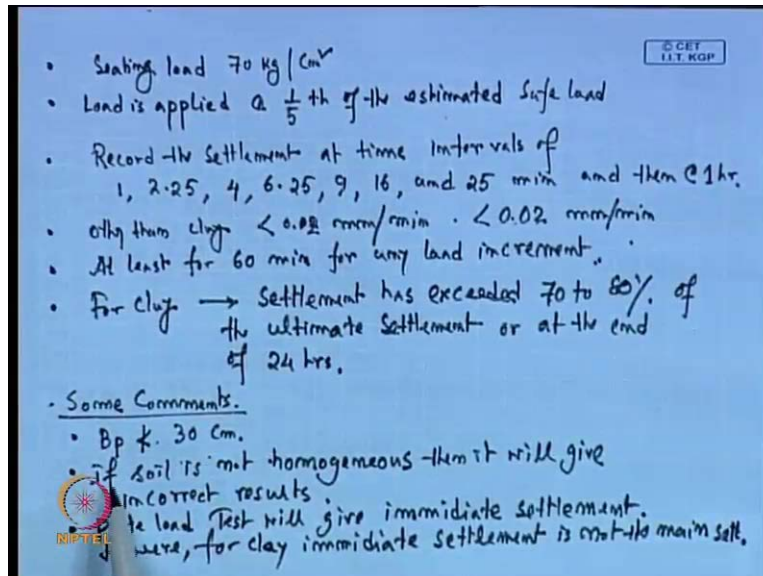 © CET
I.I.T. KGP
• Seating load 70 kg/cm²
• Load is applied @ 1/5 th of the estimated Safe load
• Record the Settlement at time intervals of
1, 2.25, 4, 6.25, 9, 16, and 25 min and then @ 1 hr.
• other than clay < 0.02 mm/min . < 0.02 mm/min
• At least for 60 min for any load increment.
• For clay → Settlement has exceeded 70 to 80% of
the ultimate settlement or at the end
of 24 hrs.
• Some Comments.
• Bp ≮ 30 cm.
• If soil is not homogeneous then it will give
incorrect results.
• load Test will give immidiate settlement.
for clay immidiate settlement is not the main sett.
NPTEL